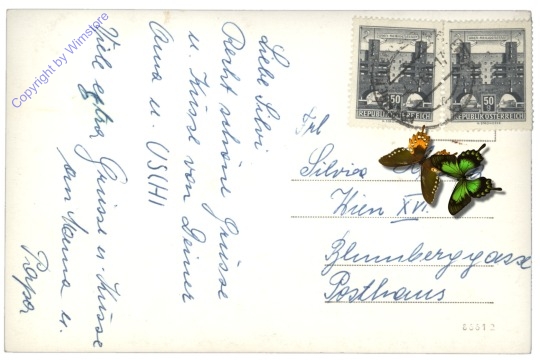 Liebe Silvi
Recht schöne Grüsse
u. Küsse von Deiner
Oma u. USCHI
Viele extra Grüsse u. Küsse
an Mama u.
Papa
REPUBLIK ÖSTERREICH
50
REPUBLIK ÖSTERREICH
50
Frl
Silvia
Wien XVI.
Blumberggasse
Posthaus
Copyright by Wimstore